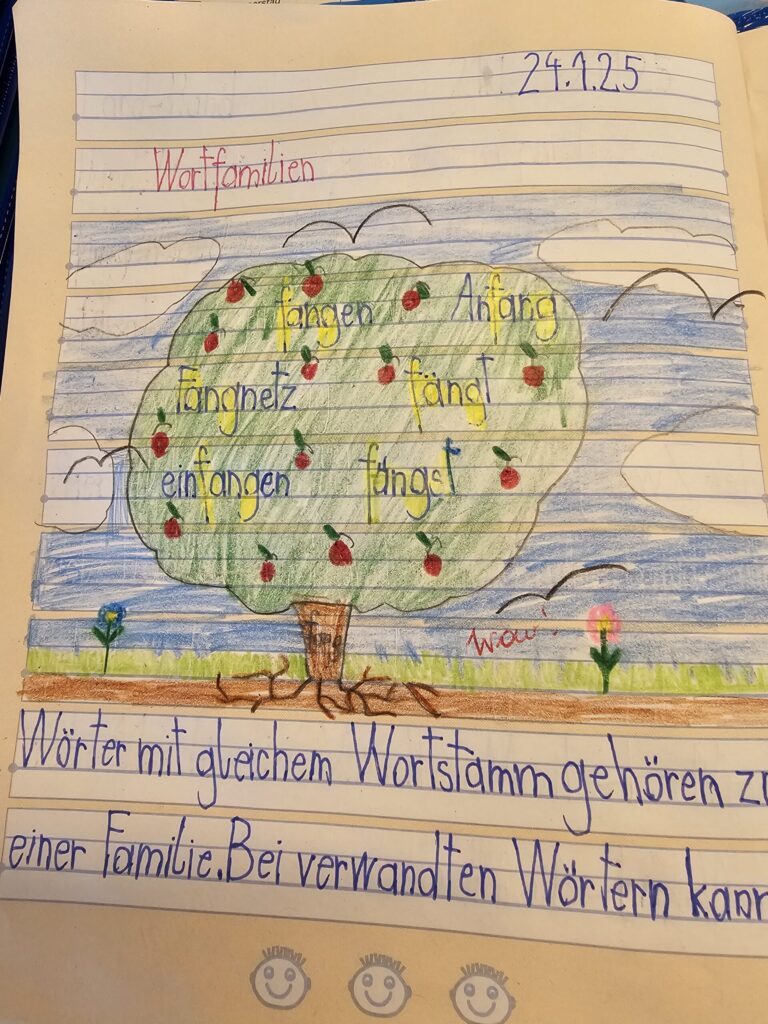 24.1.25
Wortfamilien
fangen Anfang
Fangnetz fängt
einfangen fängst
fang
Wow!
Wörter mit gleichem Wortstamm gehören zu
einer Familie. Bei verwandten Wörtern kann